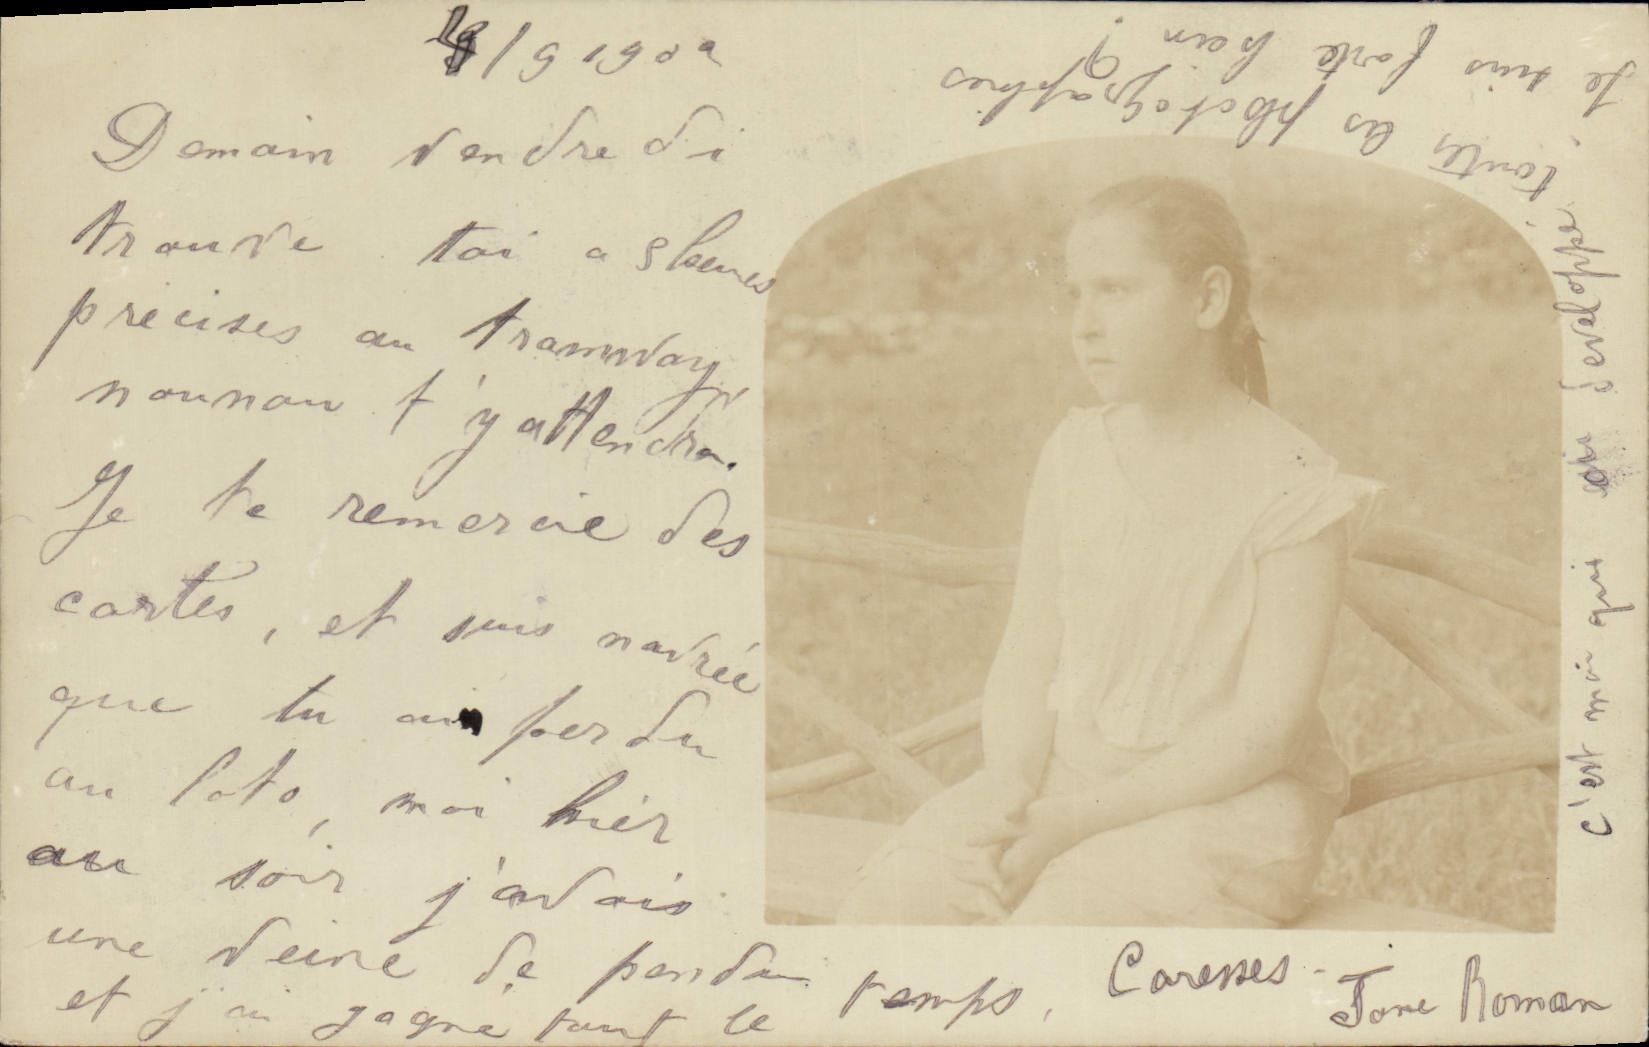 /9 190
Demain vendredi
trouve toi a heures
précises au tramway,
nounou t'y attendra.
Je te remercie des
cartes, et suis navrée
que tu ai perdu
au loto, moi hier
au soir j'avais
une veine de pendu
et j'ai gagné tout le temps,
Caresses.
Jane Roman
c'est moi qui ai développé
toutes les photographies
Je suis forte hein!